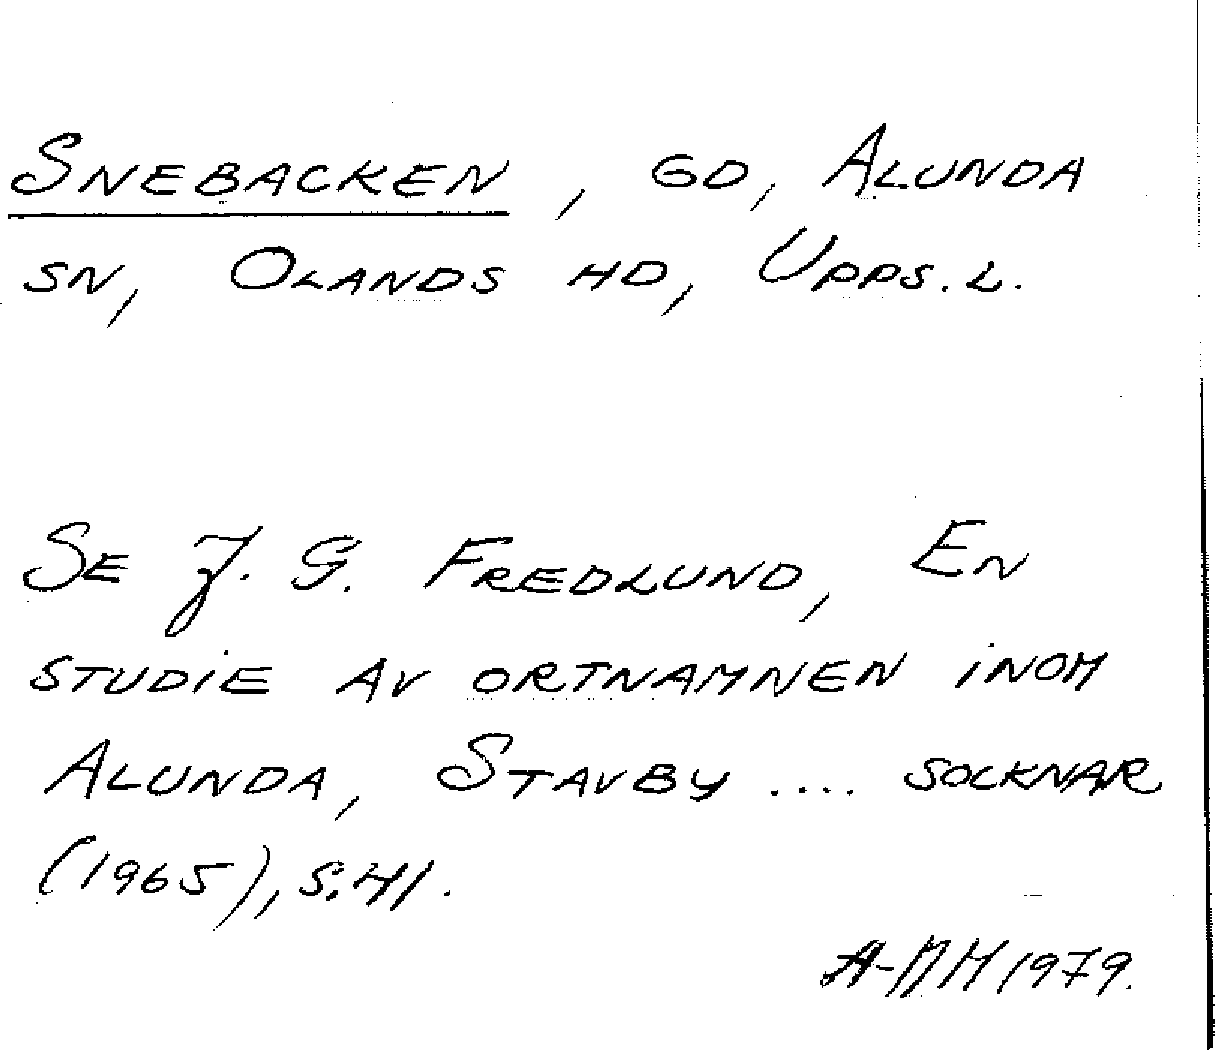 SNEBACKEN, GD, ALUNDA
SN, OLANDS HD, UPPS. L.
SE J. G. FREDLUND, EN
STUDIE AV ORTNAMNEN INOM
ALUNDA, STAVBY .... SOCKNAR
(1965), S. 41.
A-MH 1979.